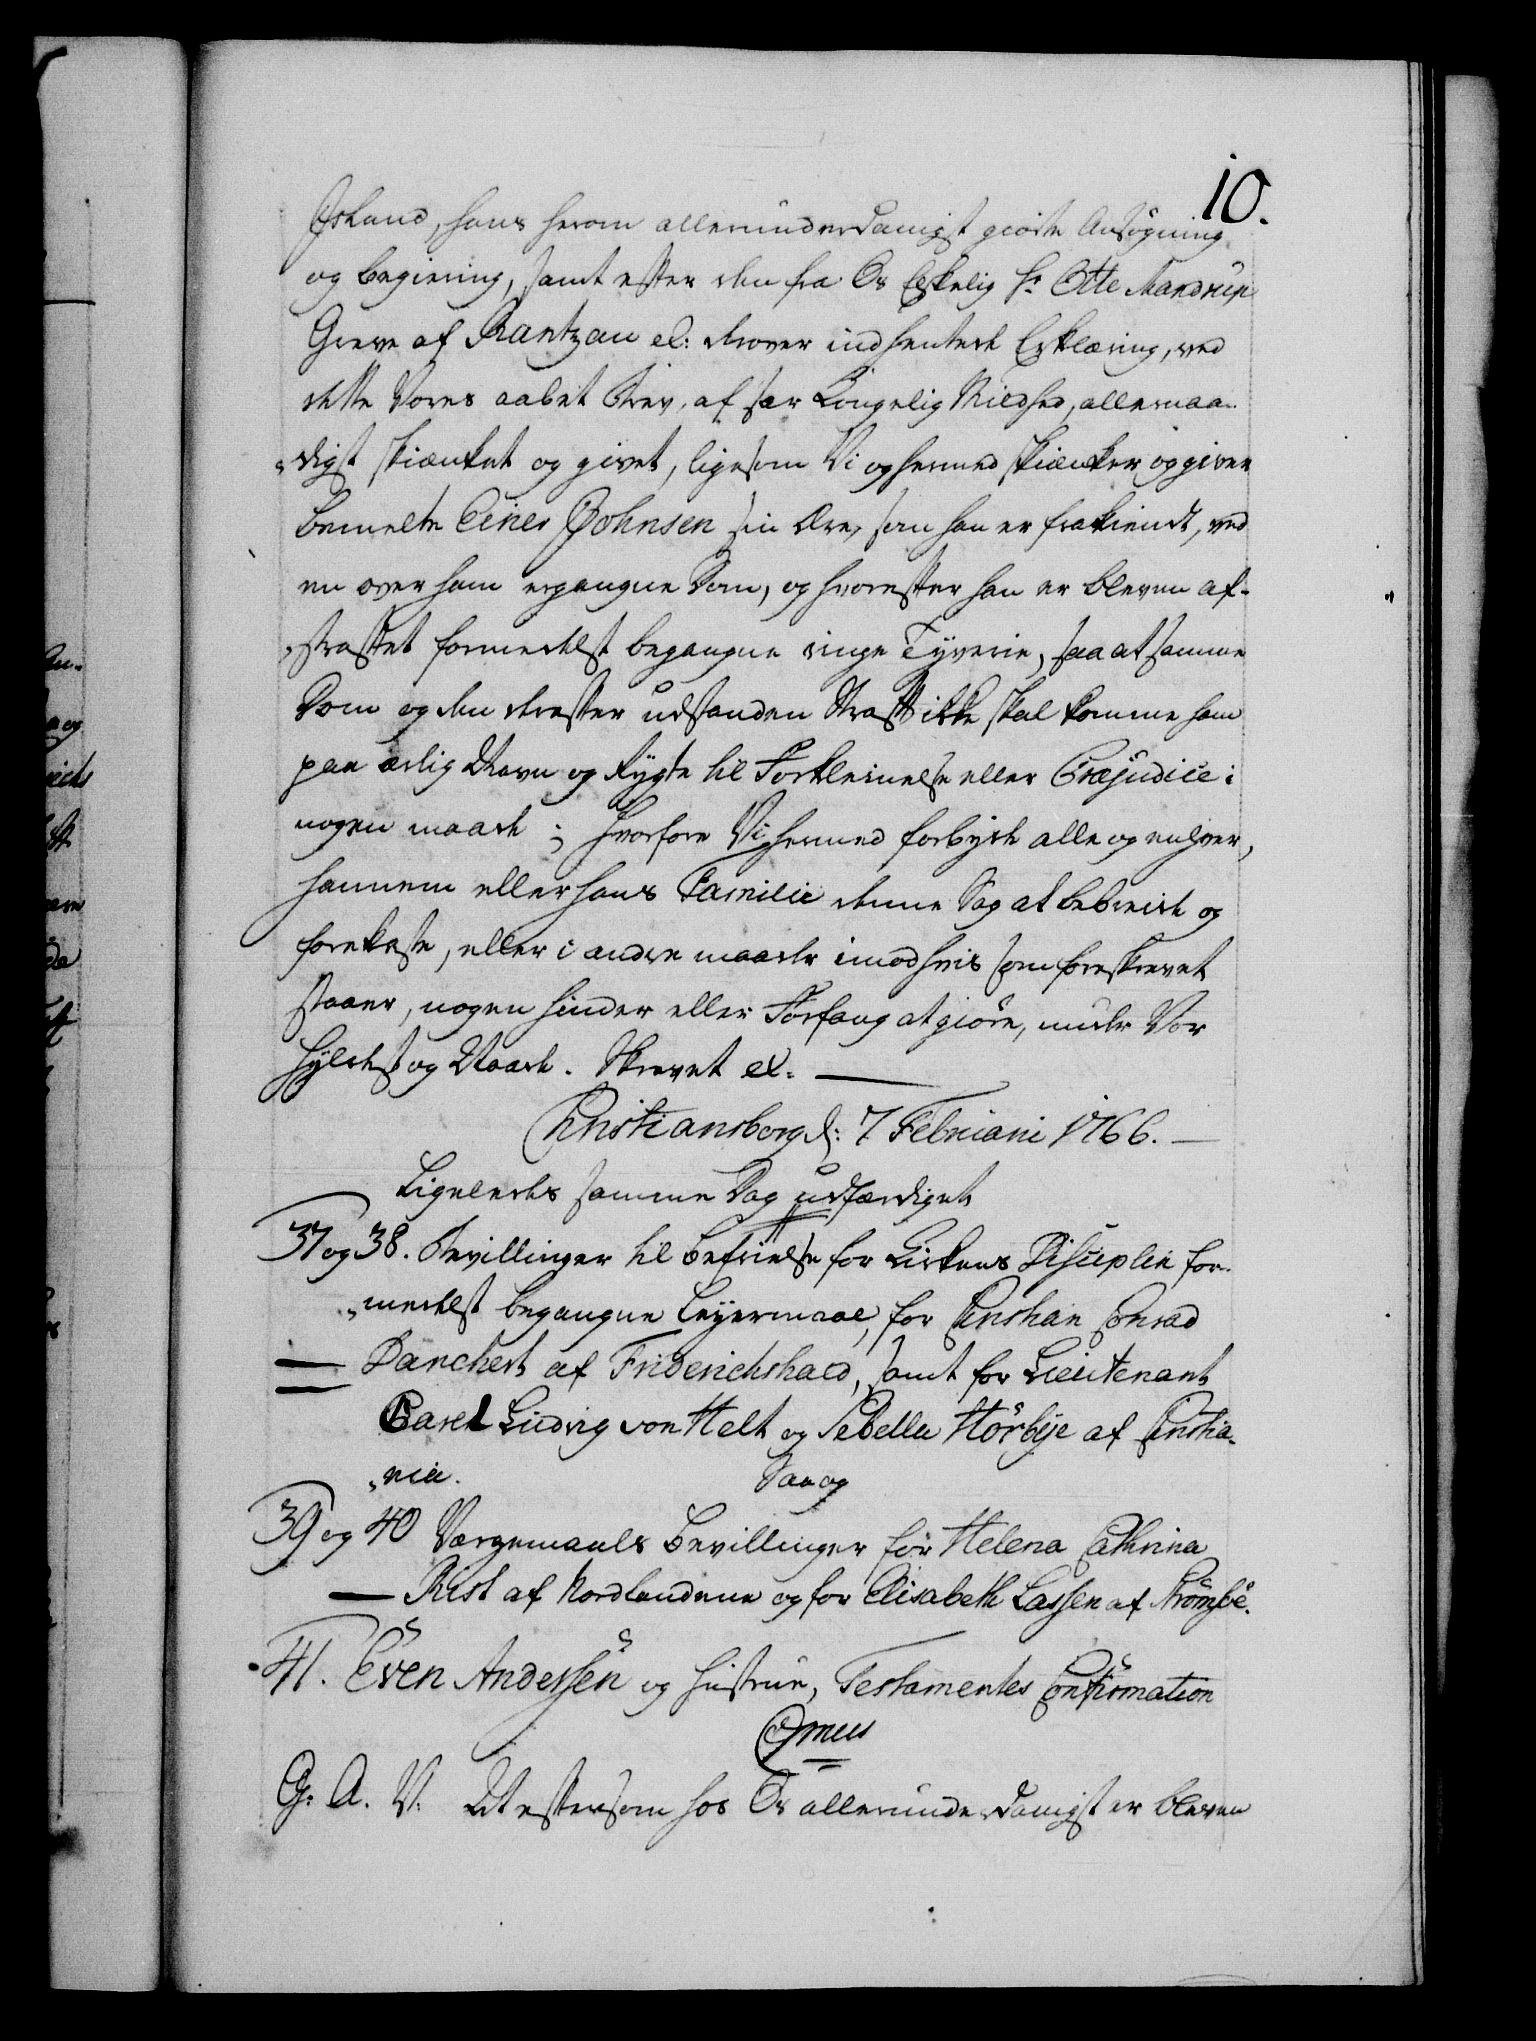 10.
Island, hans herom allerunderdanigst giorte Ansøgning
og begiering, samt efter den fra Os Elskelig Hr Otte Mandrup
Greve af Rantzau etc: derover indhentede Erklæring, ved
dette Vores aabet Brev, af sær Kongelig Mildhed, allernaa-
„digst skienket og givet, ligesom Vi og hermed skienker og giver
bemelte Einer Johnsen sin Ære, som han er frakiendt, ved
en over ham ergangne Dom, og hvorefter han er bleven af-
„straffet formedelst begangne ringe Tyverie, saa at samme
Dom og den derefter udstanden Straff ikke skal komme ham
paa ærlig Navn og Rygte til Forkleinelse eller Præjudice i
nogen maade; hvorfore Vi hermed forbyde alle og enhver,
hannem eller hans Familie denne Sag at bebreide og
forekaste, eller i andre maader imod hvis som foreskrevet
staaer, nogen hinder eller Forfang at giøre, under Vor
Hyldest og Naade. Skrevet etc.
Christiansborg d: 7 Februarii 1766.
Ligeledes samme Dag udfærdiget
37 og 38. Bevillinger til befrielse for Kirkens Disciplin for-
„medelst begangne Leyermaal, for Christian Conrad
Danchert af Friderichshald, samt for Lieutenant
Carel Ludvig von Helt og Sebella Hørbye af Christia-
„nia. Saa og
39 og 40 Værgemaals bevillinger for Helena Cathrina
Rist af Nordlandene og for Elisabeth Lassen af Tromsøe.
41. Even Anderssen og Hustrue, Testamentes Confirmation
G. A. V: At eftersom hos Os allerunderdanigst er bleven